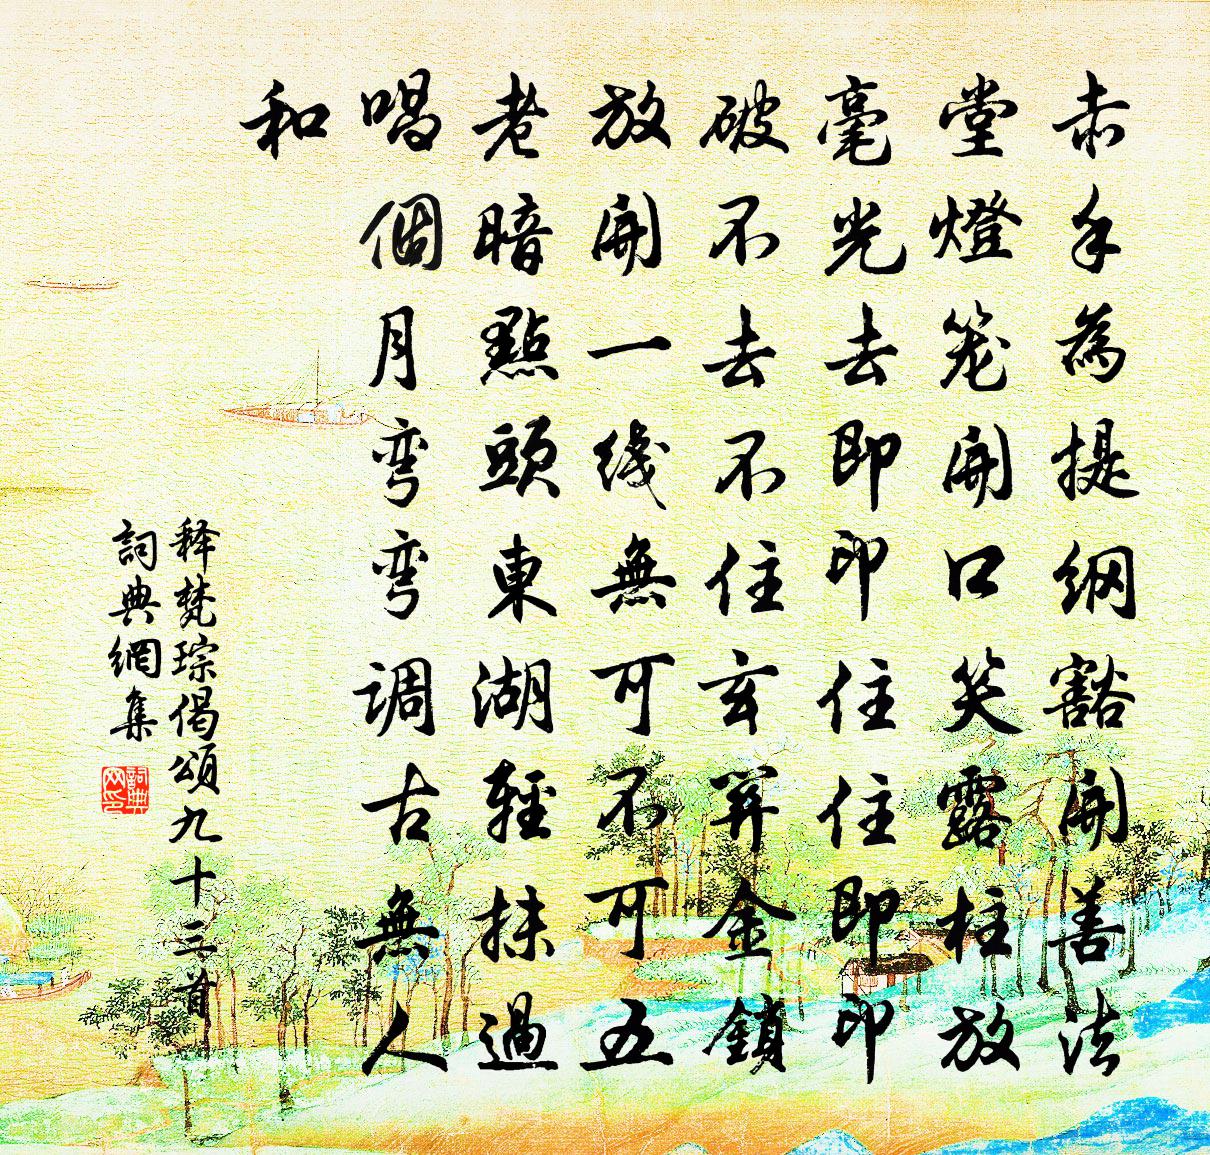 赤手為提纲豁開善法
堂燈笼開口笑露柱放
毫光去即印住住即印
破不去不住玄關金鎖
放開一线無可不可五
老暗點頭東湖輕抹過
唱個月彎彎调古無人
和
释梵琮偈頌九十三首
詞典網集